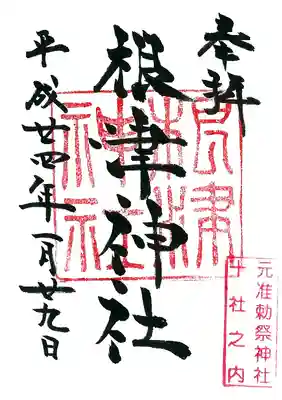 奉拝
根津神社
平成廿四年一月廿九日
根津
神社
元准勅祭神社
十社之内